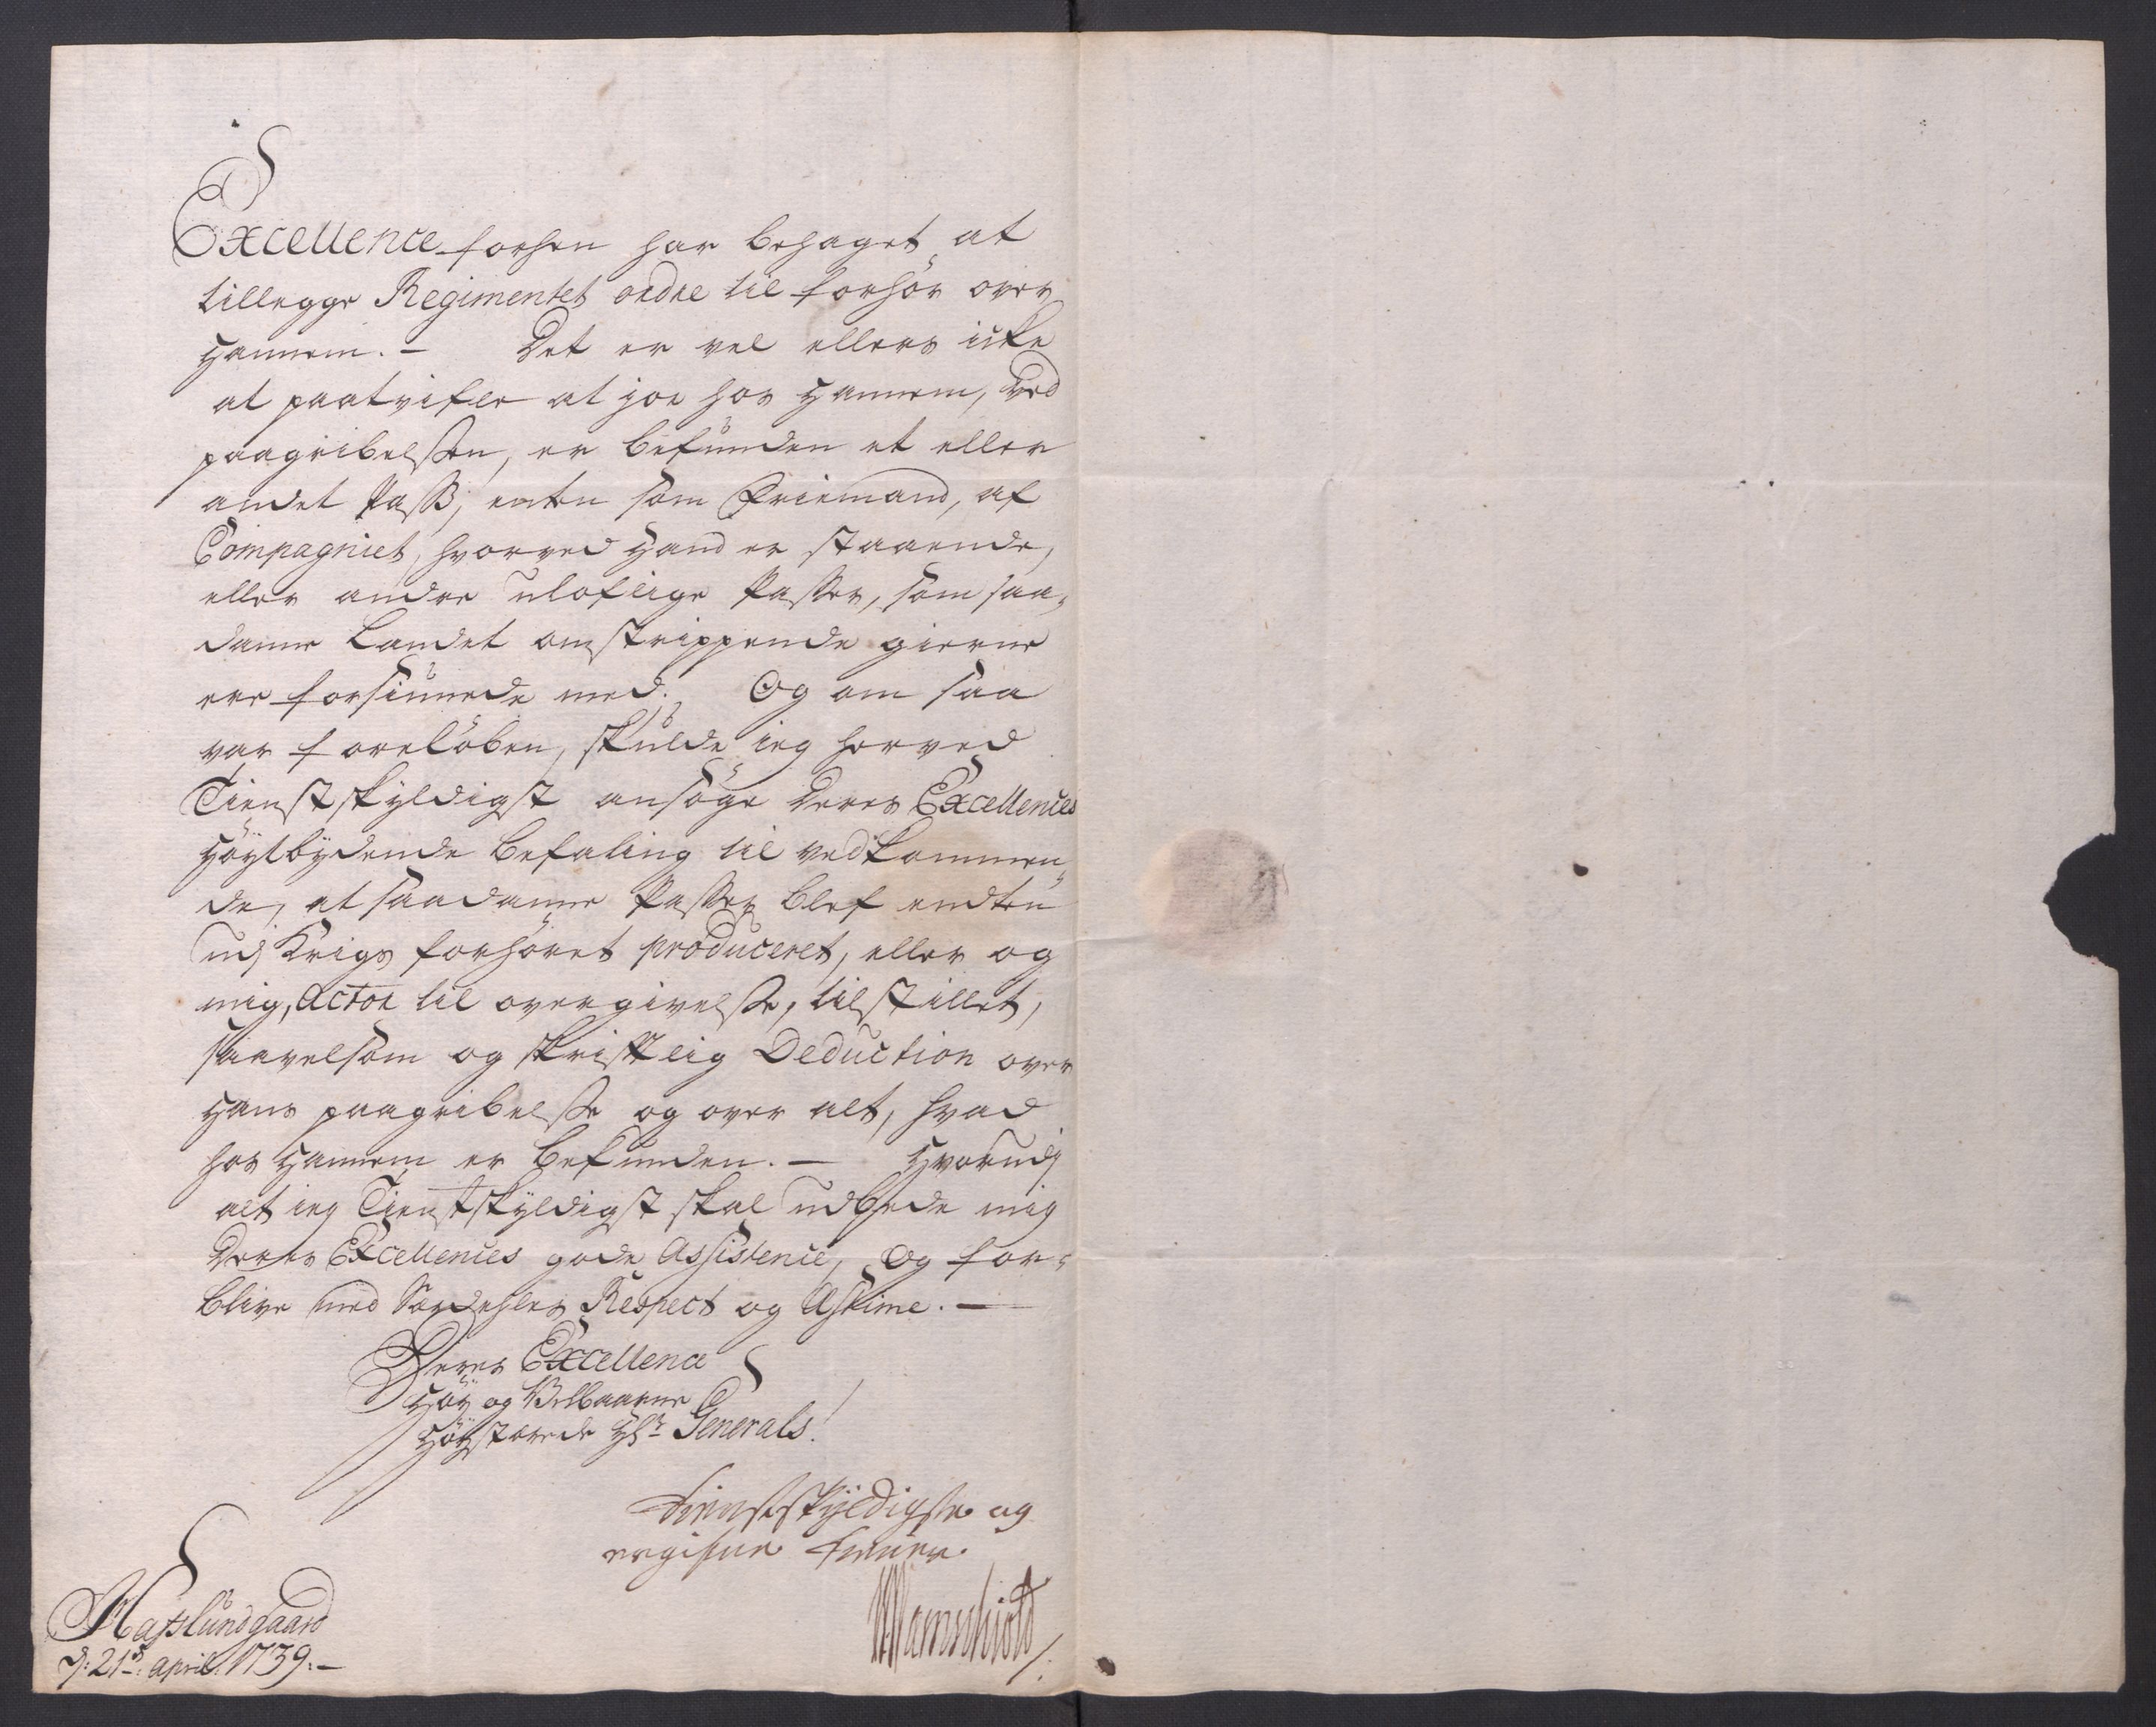 Excellence forhen har behaget at
tillegge Regimentet ordre til forhör over
Hannem. – Det er vel ellers icke
at paatvifle at joe hos Hannem, ved
paagribelssen, er befunden et eller
andet Pass; enten som Friemand, af
Compagniet, hvorved Hand er staaende,
eller andre ulovlige Passer, som saa-
danne Landet omstrippende gierne
ere forsiunede med. Og om saa
var foreløben, skulde ieg herved
Tienstskyldigst ansöge Deres Excellences
Höytbydende Befaling til vedkommen-
de, at saadanne Passer blef endten
udj Krigs forhöret produceret, eller og
mig, Actor til overgivelsse, tilstillet,
saavelsom og skriftlig Deduction over
Hans paagribelsse og over alt, hvad
hos Hannem er befunden. – Hvorudj
alt ieg Tienstskyldigst skal udbede mig
Deres Excellences gode Assistence, Og for-
blive med Særdehles Respect og Estime. –
Deres Excellence
Höy og Velbaarne
Höystærede Hr. Generals!
Tienstskyldigste og
ergifne Tiener
WWernschiold /:
Hafslundgaard
d: 21d. April. 1739. –